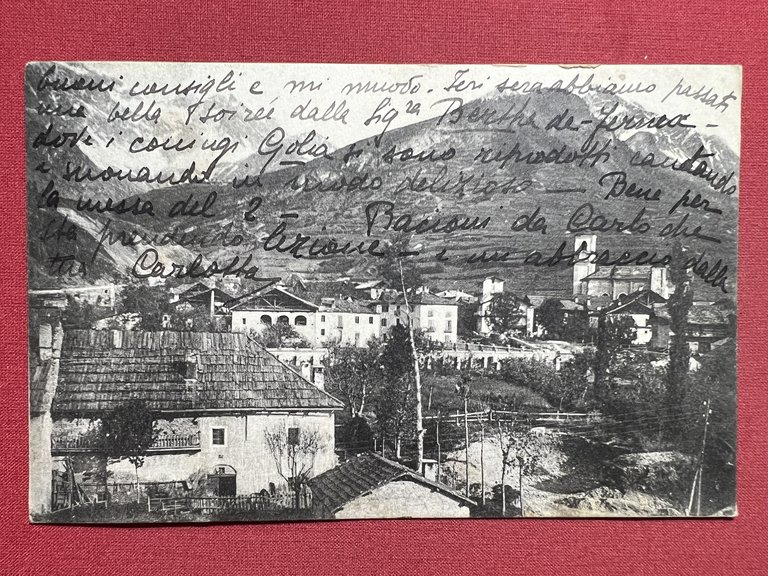 buoni consigli e mi muovo. Ieri sera abbiamo passati
una bella Soireé dalla Sigra Berthe de-
dove i coniugi Golia si sono riprodotti cantando
e suonando in modo delizioso — Bene per
la messa del 2 — Bacioni da Carlo che
sta prendendo lezione — e un abbraccio dalla
tua Carlotta